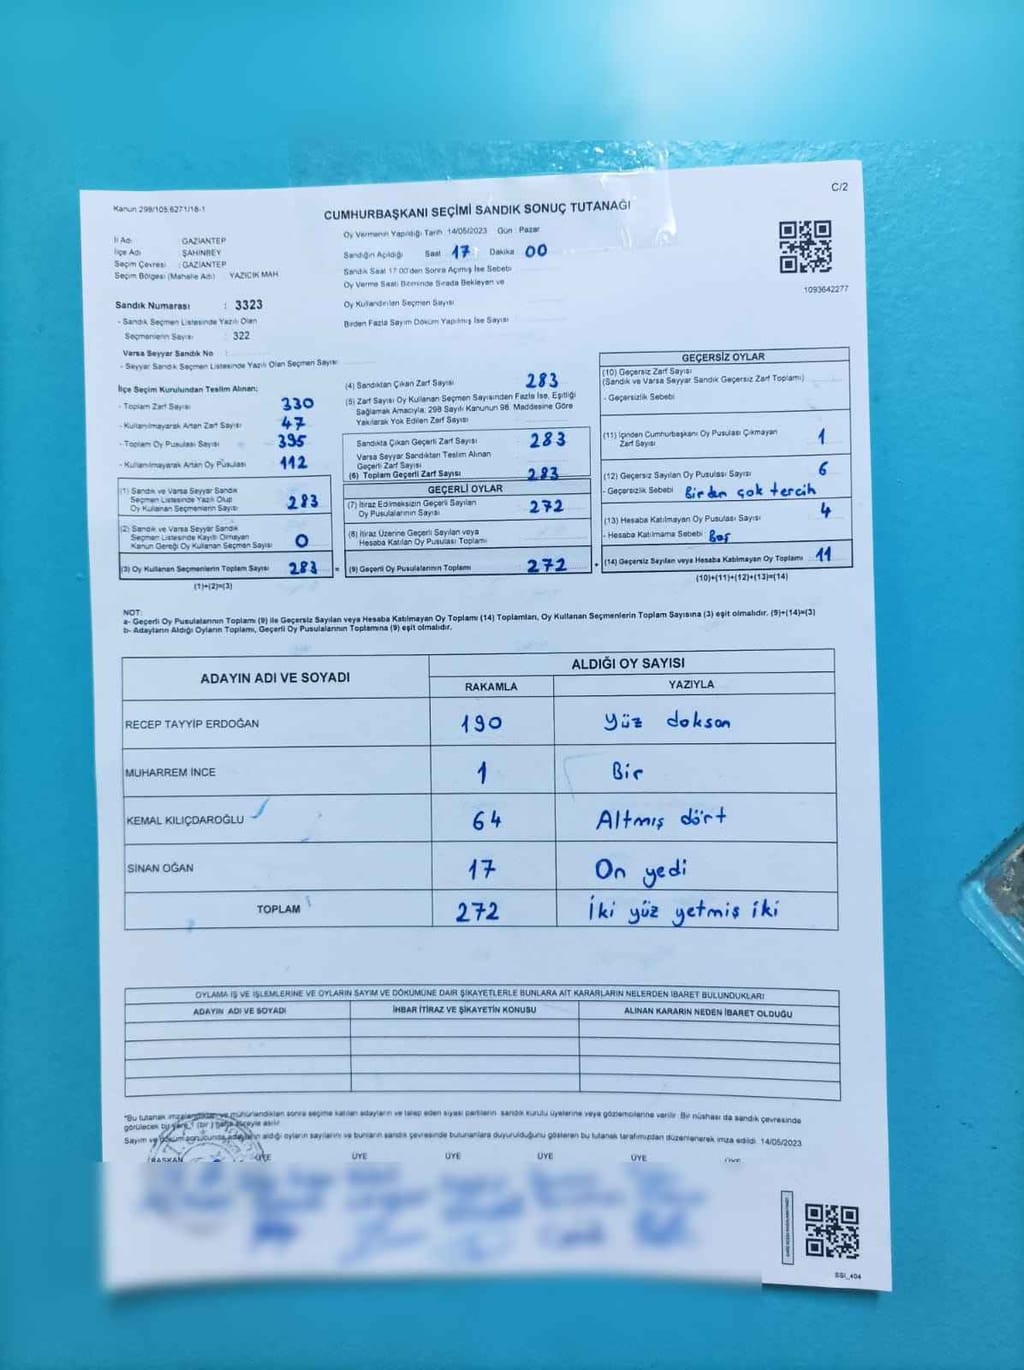 C/2
Kanun 298/105.6271/18-1
CUMHURBAŞKANI SEÇİMİ SANDIK SONUÇ TUTANAĞI
İl Adı GAZİANTEP
İlçe Adı ŞAHİNBEY
Seçim Çevresi : GAZİANTEP
Seçim Bölgesi (Mahalle Adı) YAZICIK MAH
Sandık Numarası : 3323
- Sandık Seçmen Listesinde Yazılı Olan
Seçmenlerin Sayısı : 322
Varsa Seyyar Sandık No
- Seyyar Sandık Seçmen Listesinde Yazılı Olan Seçmen Sayısı
Oy Vermenin Yapıldığı Tarih :14/05/2023 Gün : Pazar
Sandığın Açıldığı Saat 17 Dakika 00
Sandık Saat 17.00'den Sonra Açılmış İse Sebebi
Oy Verme Saati Bitiminde Sırada Bekleyen ve
Oy Kullandırılan Seçmen Sayısı
Birden Fazla Sayım Döküm Yapılmış İse Sayısı
1093642277
İlçe Seçim Kurulundan Teslim Alınan;
- Toplam Zarf Sayısı 330
- Kullanılmayarak Artan Zarf Sayısı 47
- Toplam Oy Pusulası Sayısı 395
- Kullanılmayarak Artan Oy Pusulası 112
(1) Sandık ve Varsa Seyyar Sandık
Seçmen Listesinde Yazılı Olup
Oy Kullanan Seçmenlerin Sayısı 283
(2) Sandık ve Varsa Seyyar Sandık
Seçmen Listesinde Kayıtlı Olmayan
Kanun Gereği Oy Kullanan Seçmen Sayısı 0
(3) Oy Kullanan Seçmenlerin Toplam Sayısı 283 =
(1)+(2)=(3)
(4) Sandıktan Çıkan Zarf Sayısı 283
(5) Zarf Sayısı Oy Kullanan Seçmen Sayısından Fazla İse, Eşitliği
Sağlamak Amacıyla, 298 Sayılı Kanunun 98. Maddesine Göre
Yakılarak Yok Edilen Zarf Sayısı
Sandıkta Çıkan Geçerli Zarf Sayısı 283
Varsa Seyyar Sandıktan Teslim Alınan
Geçerli Zarf Sayısı
(6) Toplam Geçerli Zarf Sayısı 283
GEÇERLİ OYLAR
(7) İtiraz Edilmeksizin Geçerli Sayılan
Oy Pusulalarının Sayısı 272
(8) İtiraz Üzerine Geçerli Sayılan veya
Hesaba Katılan Oy Pusulası Toplamı
(9) Geçerli Oy Pusulalarının Toplamı 272 +
GEÇERSİZ OYLAR
(10) Geçersiz Zarf Sayısı
(Sandık ve Varsa Seyyar Sandık Geçersiz Zarf Toplamı)
- Geçersizlik Sebebi
(11) İçinden Cumhurbaşkanı Oy Pusulası Çıkmayan
Zarf Sayısı 1
(12) Geçersiz Sayılan Oy Pusulası Sayısı 6
- Geçersizlik Sebebi Birden çok tercih
(13) Hesaba Katılmayan Oy Pusulası Sayısı 4
- Hesaba Katılmama Sebebi Boş
(14) Geçersiz Sayılan veya Hesaba Katılmayan Oy Toplamı 11
(10)+(11)+(12)+(13)=(14)
NOT:
a- Geçerli Oy Pusulalarının Toplamı (9) ile Geçersiz Sayılan veya Hesaba Katılmayan Oy Toplamı (14) Toplamları, Oy Kullanan Seçmenlerin Toplam Sayısına (3) eşit olmalıdır. (9)+(14)=(3)
b- Adayların Aldığı Oyların Toplamı, Geçerli Oy Pusulalarının Toplamına (9) eşit olmalıdır.
ADAYIN ADI VE SOYADI
ALDIĞI OY SAYISI
RAKAMLA YAZIYLA
RECEP TAYYİP ERDOĞAN 190 Yüz doksan
MUHARREM İNCE 1 Bir
KEMAL KILIÇDAROĞLU 64 Altmış dört
SİNAN OĞAN 17 On yedi
TOPLAM 272 İki yüz yetmiş iki
OYLAMA İŞ VE İŞLEMLERİNE VE OYLARIN SAYIM VE DÖKÜMÜNE DAİR ŞİKAYETLERLE BUNLARA AİT KARARLARIN NELERDEN İBARET BULUNDUKLARI
ADAYIN ADI VE SOYADI İHBAR İTİRAZ VE ŞİKAYETİN KONUSU ALINAN KARARIN NEDEN İBARET OLDUĞU
*Bu tutanak imzalandıktan ve mühürlendikten sonra seçime katılan adayların ve talep eden siyasi partilerin sandık kurulu üyelerine veya gözlemcilerine verilir. Bir nüshası da sandık çevresinde
görülecek bir yere 1 (bir) hafta süreyle asılır.
Sayım ve döküm sonucunda adayların aldığı oyların sayılarını ve bunların sandık çevresinde bulunanlara duyurulduğunu gösteren bu tutanak tarafımızdan düzenlenerek imza edildi. 14/05/2023
BAŞKAN ÜYE ÜYE ÜYE ÜYE ÜYE ÜYE
SSI_404